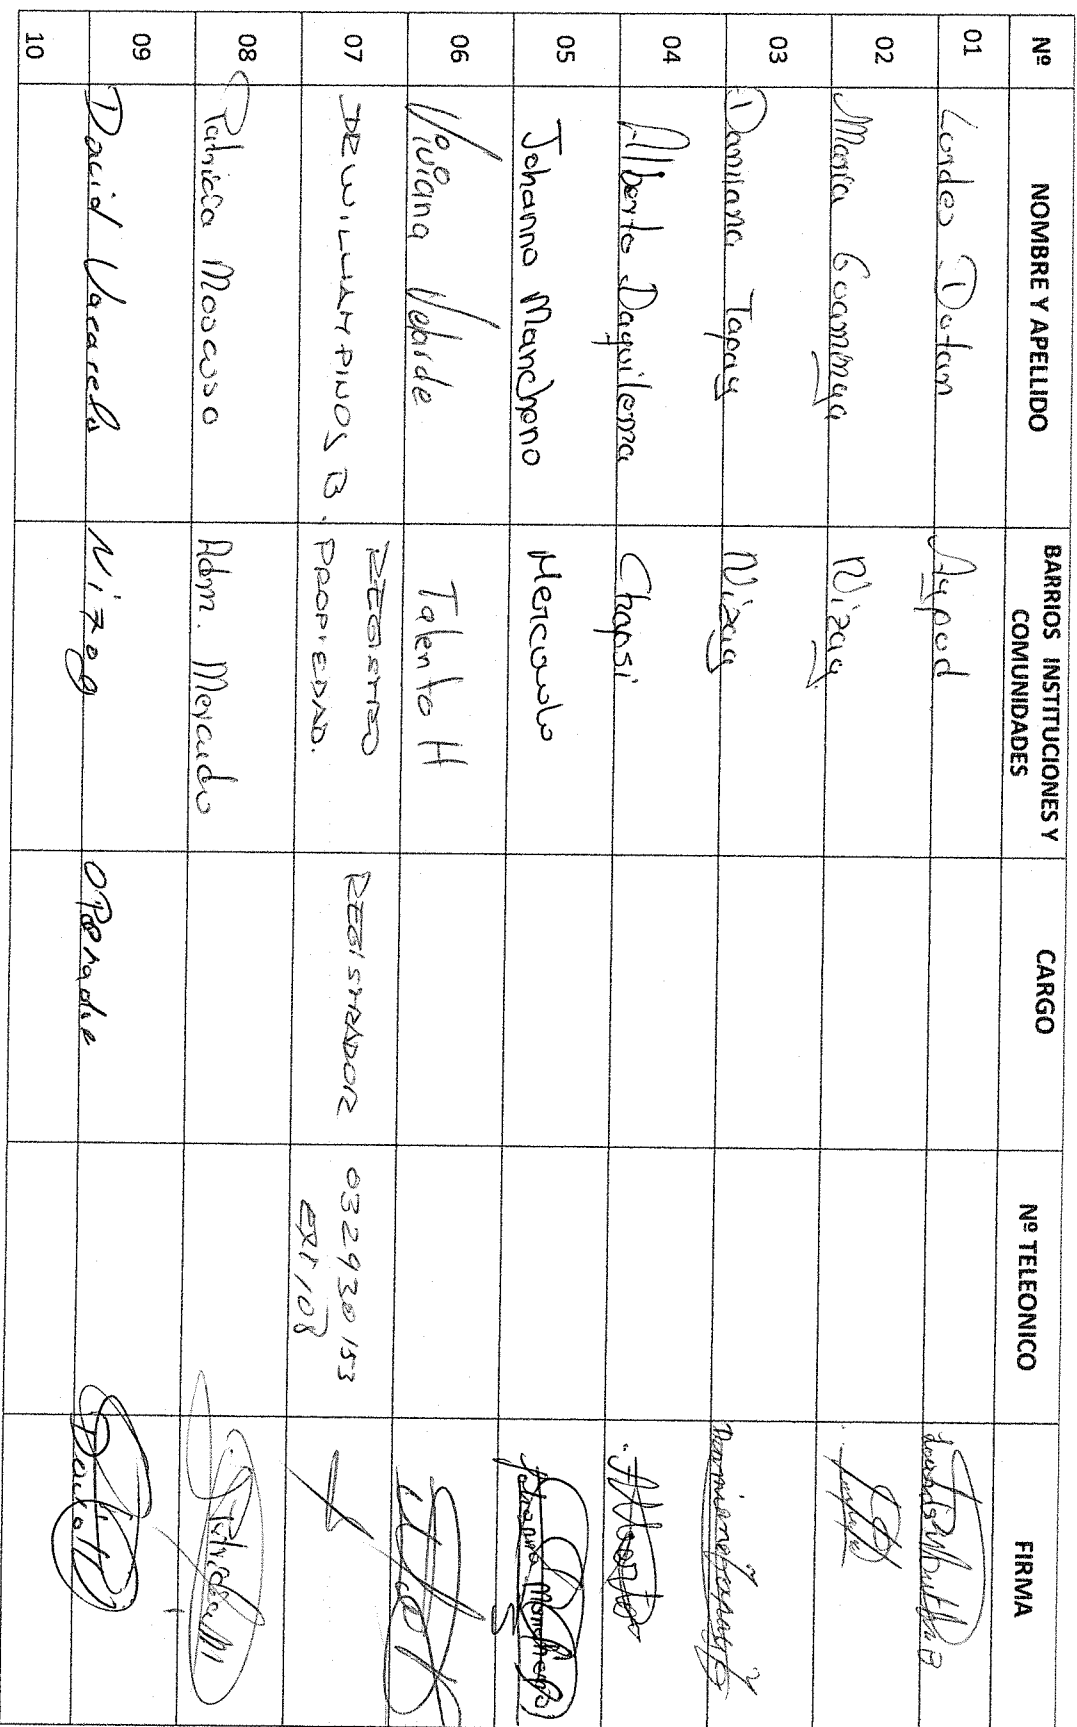 Nº NOMBRE Y APELLIDO BARRIOS INSTITUCIONES Y COMUNIDADES CARGO Nº TELEONICO FIRMA
01 Lourdes Dutan Aypud
02 Maria Guaminga Nizag
03 Damiana Tapay Nizag
04 Alberto Daquilema Chapsi Alberto
05 Johanna Mancheno Mercado Johanna Mancheno
06 Viviana Velarde Talento H
07 DR WILLIAM PINOS B. REGISTRO PROPIEDAD. REGISTRADOR 032930153 EXT 108
08 Patricia Moscoso Adm. Mercado
09 David Vacacela Nizag Operador
10